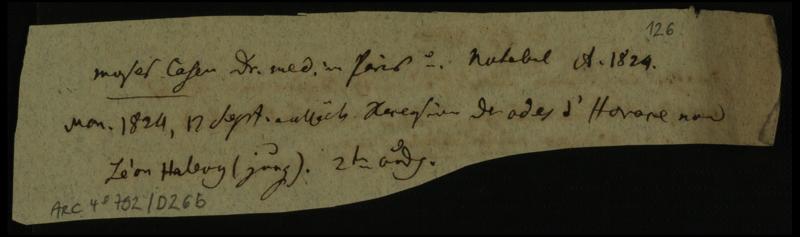 126
Moses Cahen Dr. med. in Paris u. Notabel st. 1824.
Mon. 1824, 17 Sept. anläßl. Recension der odes d'Horace von
Léon Halevy (jung). 2te Ausg.
ARC 4° 792/D26b